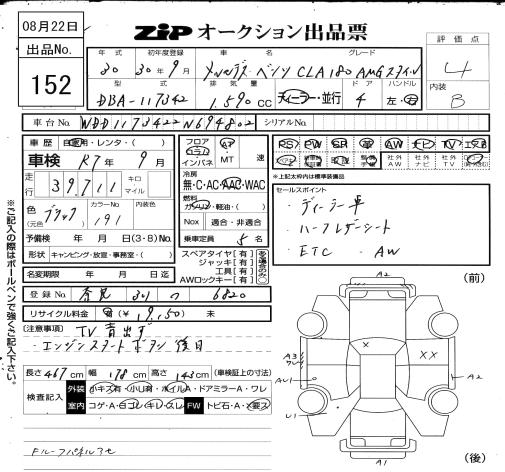 08月22日
出品No.
152
ZIP オークション出品票
年式 初年度登録 車名 グレード
30 30年9月 メルセデス ベンツ CLA180 AMGスタイル
型式 排気量 ドア ハンドル
DBA-117342 1,590 CC ディーラー・並行 4 左・右
評価点
4
内装
B
車台No. WDD1173422N694802 シリアルNo.
車歴 自家用・レンタ・( )
車検 R7年9月
走行 39,711 キロ マイル
色(元色) ブラック カラーNo. 191 内装色
予備検 年 月 日(3・8)No.
形状 キャンピング・放宣・事務室・( )
名変期限 年 月 日迄
フロア コラム インパネ AT MT 速
冷房
無・C・AC・AAC・WAC
燃料
ガソリン・軽油・( )
Nox 適合・非適合
乗車定員 5名
スペアタイヤ[有]
ジャッキ[有]
工具[有]
AWロックキー[有]
PS PW SR 革 AW ナビ TV エアB
社外AW 社外ナビ 社外TV
※上記太枠内は標準装備品
セールスポイント
・ディーラー車
・ハーフレザーシート
・ETC ・AW
登録No. 奈良 301 つ 6820
リサイクル料金 有 ¥19,150 未
[注意事項] TV音出ず
・エンジンスタートボタン後日
長さ467cm 幅178cm 高さ143cm (車検証上の寸法)
検査記入
外装 小キズ有・小凹有・ホイルA・ドアミラーA・ワレ
室内 コゲ・A・凹コレ・キレ・スレ FW トビ石・A・X要ス
Fルーフパネル3セ
※ご記入の際はボールペンで強くご記入下さい。
(前)
A2
A3
ワレ
AU1
U1
X
XX
A2
A1
(後)